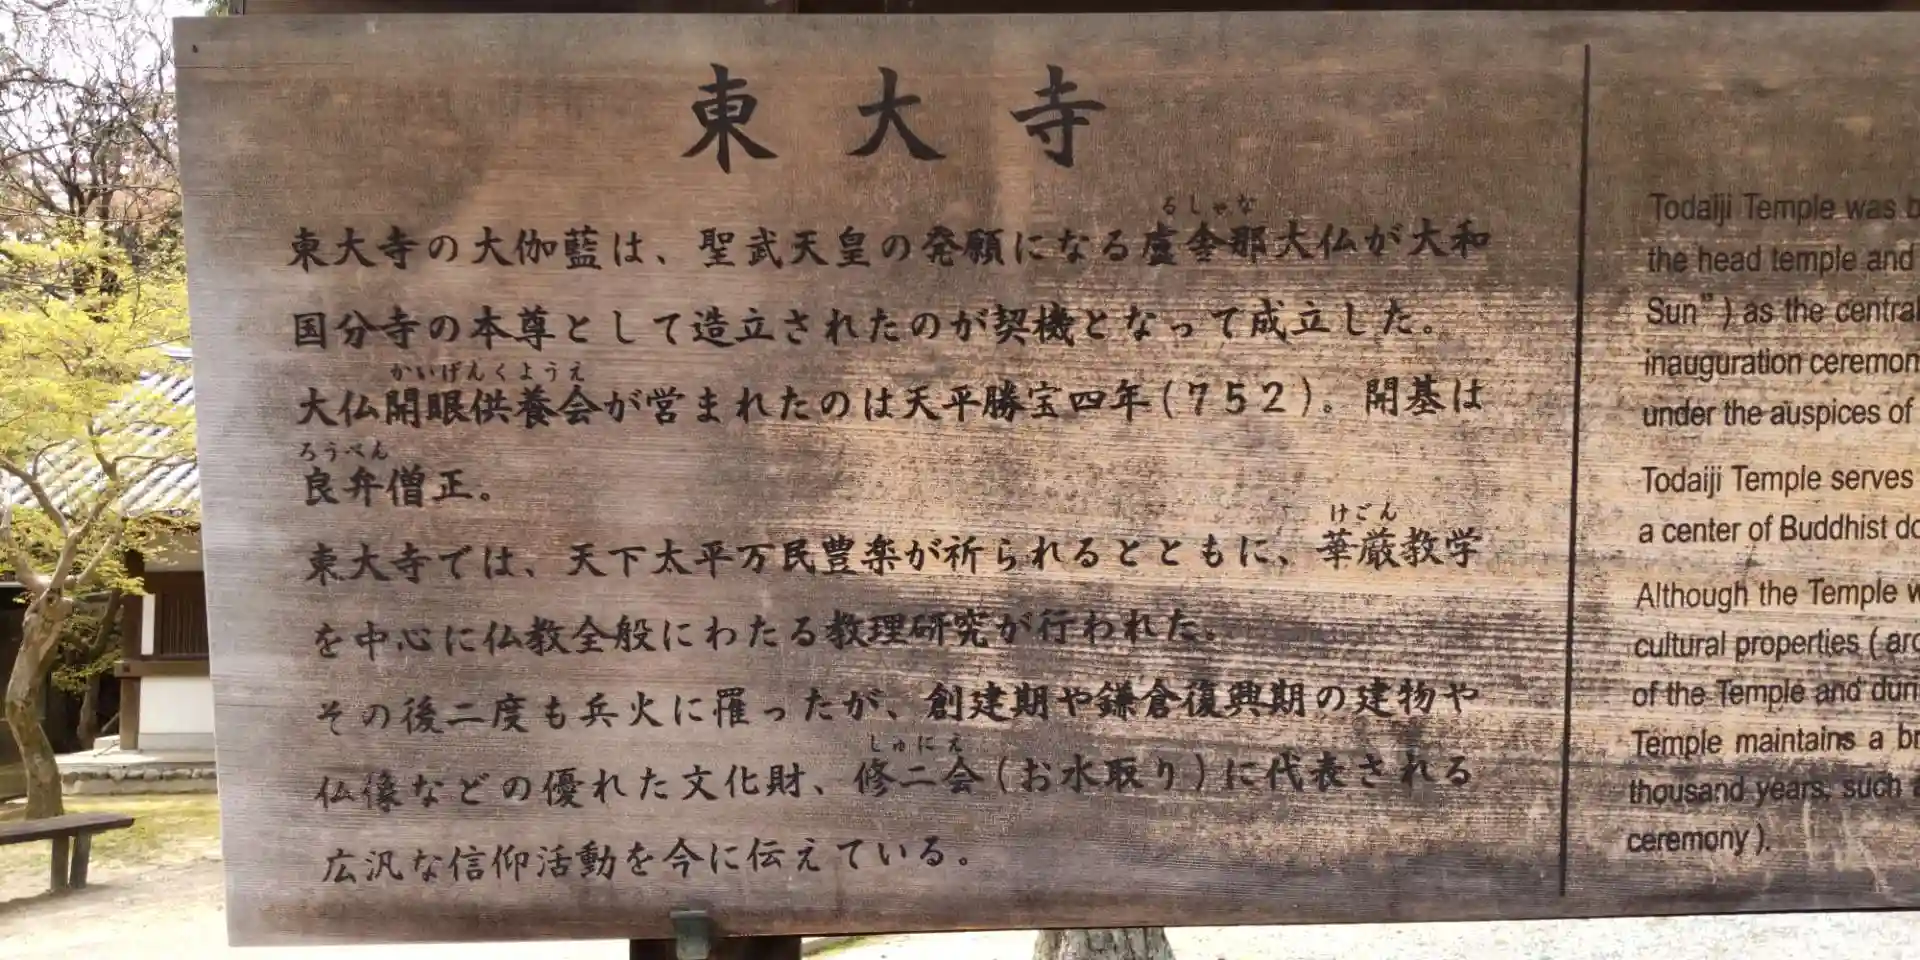 東大寺
るしゃな
東大寺の大伽藍は、聖武天皇の発願になる盧舎那大仏が大和
国分寺の本尊として造立されたのが契機となって成立した。
かいげんくようえ
大仏開眼供養会が営まれたのは天平勝宝四年(752)。開基は
ろうべん
良弁僧正。
けごん
東大寺では、天下太平万民豊楽が祈られるとともに、華厳教学
を中心に仏教全般にわたる教理研究が行われた。
その後二度も兵火に罹ったが、創建期や鎌倉復興期の建物や
しゅにえ
仏像などの優れた文化財、修二会(お水取り)に代表される
広汎な信仰活動を今に伝えている。
Todaiji Temple was b
the head temple and
Sun”) as the central
inauguration ceremon
under the auspices of
Todaiji Temple serves
a center of Buddhist do
Although the Temple w
cultural properties ( arc
of the Temple and duri
Temple maintains a br
thousand years, such a
ceremony ).